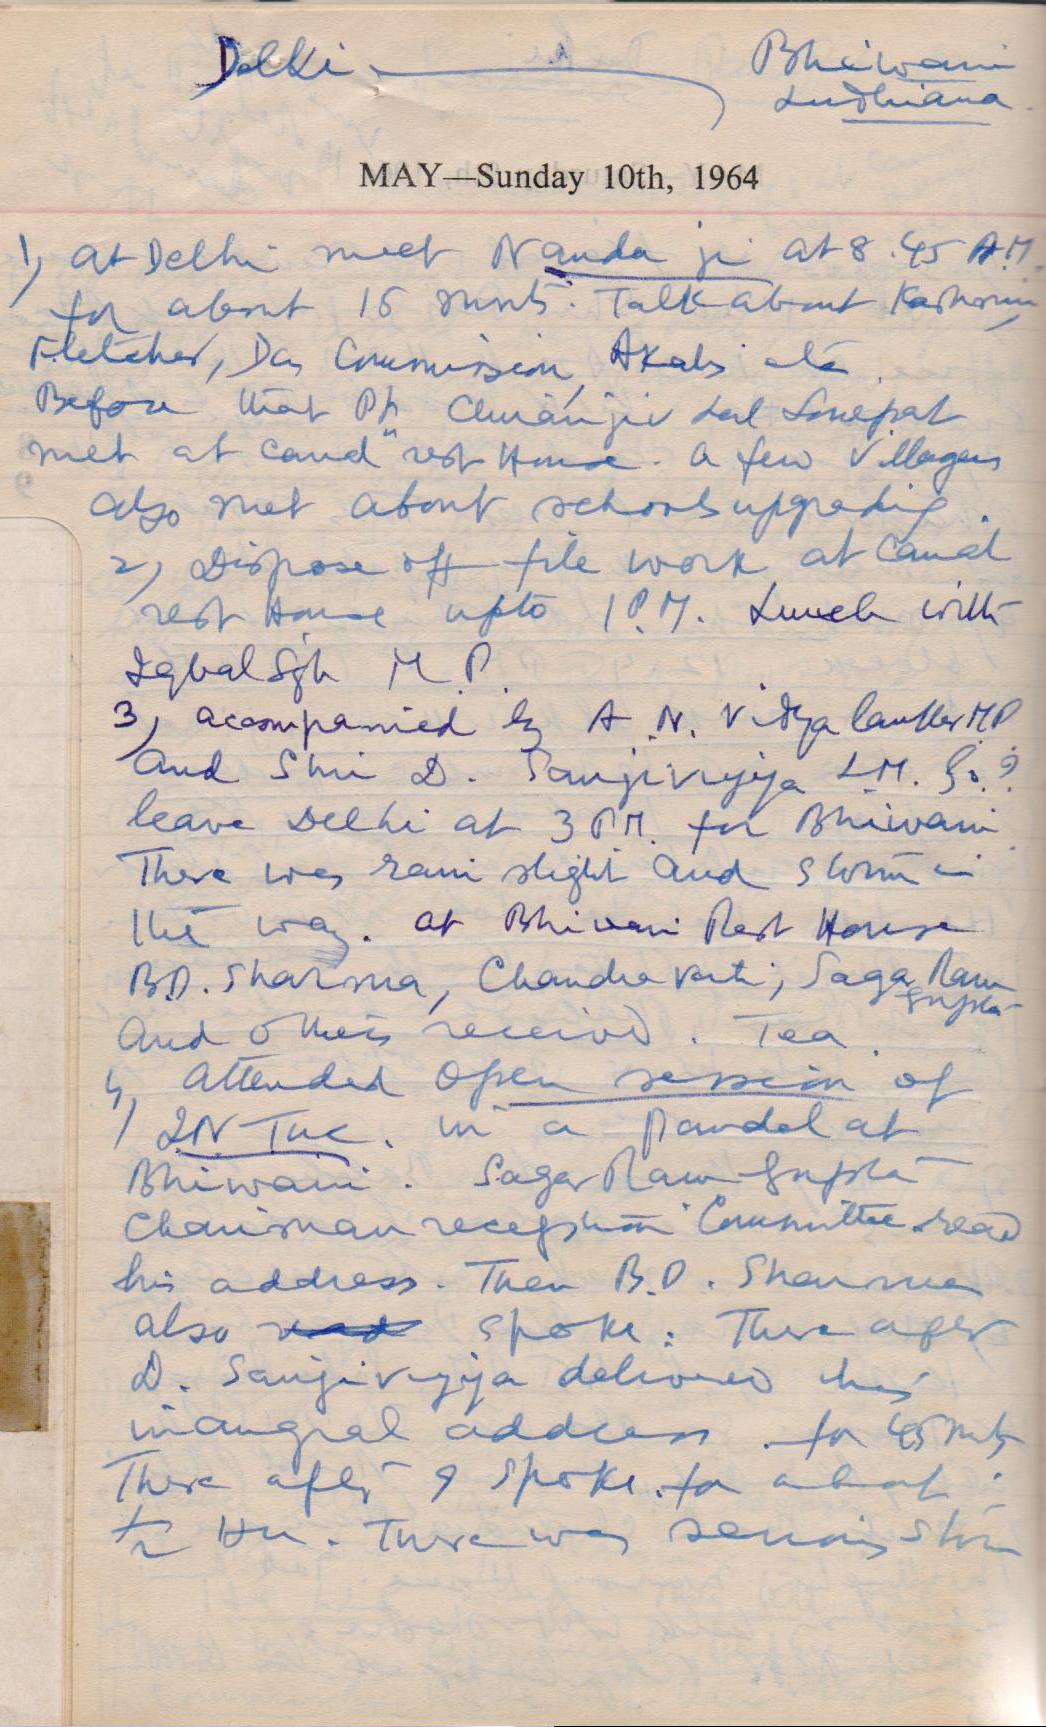 Delhi Bhiwani
Ludhiana
MAY—Sunday 10th, 1964
1) at Delhi meet Nanda ji at 8.45 A.M.
for about 15 mnts. Talk about
Fletcher, Das Commission, Akalis etc.
Before that Pt. Chiranjiv Lal Sonepat
met at canal rest House. a few Villagers
also met about schools upgrading.
2) Dispose off file work at Canal
rest House upto 1 P.M. Lunch with
Iqbal Sgh M.P.
3) acompanied by A.N. Vidyalankar M.P
and Shri D. Sanjiviyiya L.M.
leave Delhi at 3 P.M. for Bhiwani
There was rain slight and storm in
the way. at Bhiwani Rest House
B.D. Sharma, Chandravati, Sagar Ram
Gupta
and others received. Tea.
4) attended open session of
INTUC. in a pandal at
Bhiwani. Sagar Ram Gupta
Chairman reception Committee read
his address. Then B.D. Sharma
also spoke. There after
D. Sanjiviyiya delivered his
inaugral address for 45 mnts
There after I spoke for about
½ Hr. There was serious storm